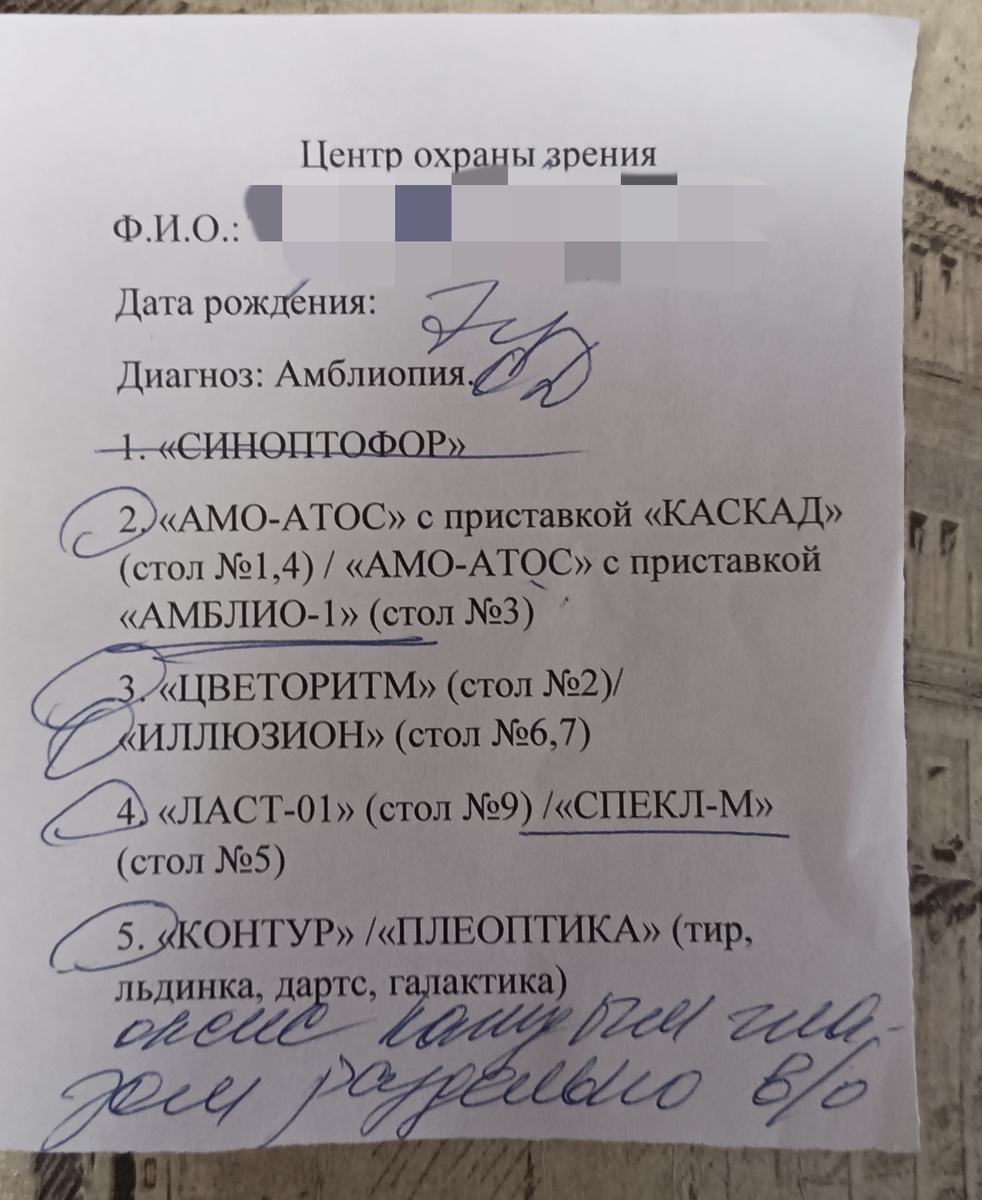 Центр охраны зрения
Ф.И.О.:
Дата рождения:
Диагноз: Амблиопия.
1. «СИНОПТОФОР»
2. «АМО-АТОС» с приставкой «КАСКАД»
(стол №1,4) / «АМО-АТОС» с приставкой
«АМБЛИО-1» (стол №3)
3. «ЦВЕТОРИТМ» (стол №2)/
«ИЛЛЮЗИОН» (стол №6,7)
4. «ЛАСТ-01» (стол №9) /«СПЕКЛ-М»
(стол №5)
5. «КОНТУР» /«ПЛЕОПТИКА» (тир,
льдинка, дартс, галактика)
каждым гла-
зом раздельно в/о